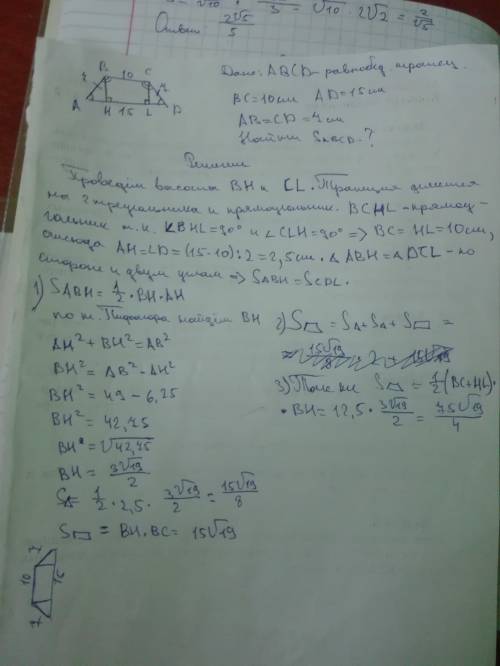 Ответ: 2√5/5
B 10 C
A H 15 L D
Дано: ABCD - равнобед. трапец.
BC=10см AD=15см
AB=CD=7см
Найти SABCD-?
Решение
Проведём высоты BH и CL. Трапеция делится
на 2 треугольника и прямоугольник. BCHL - прямоу-
гольник т.к. ∠BHL=90° и ∠CLH=90° => BC=HL=10см,
отсюда AH=LD=(15-10):2=2,5см. △ABH=△DCL - по
стороне и двум углам => SABH=SCDL.
1) SABH=1/2·BH·AH
по т. Пифагора найдём BH
AH²+BH²=AB²
BH²=AB²-AH²
BH²=49-6,25
BH²=42,75
BH=√42,75
BH=3√19/2
S△=1/2·2,5·3√19/2=15√19/8
S▭=BH·BC=15√19
2) S▭=S△+S△+S▭=
3) S▭=1/2(BC+HL)·
·BH=12,5·3√19/2=75√19/4
7
10
7